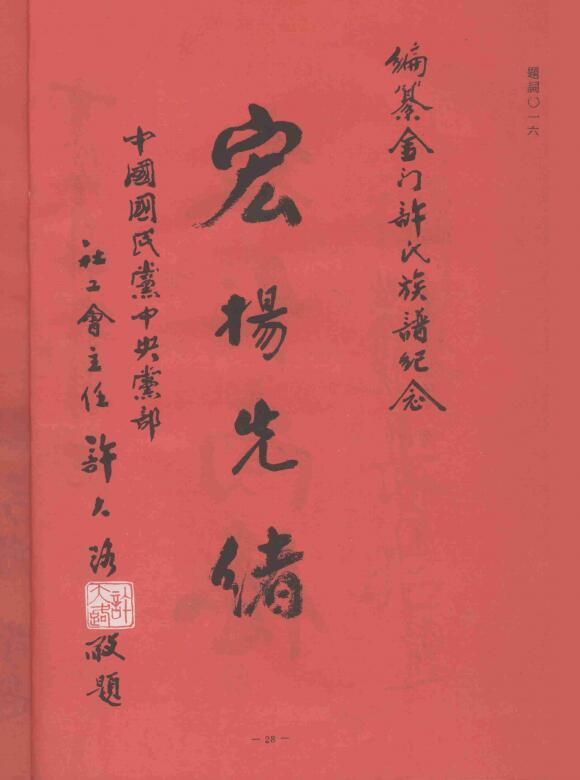 題詞〇一六
編纂金门許氏族譜紀念
宏揚先緒
中國國民黨中央黨部
社工會主任許大路敬題
許大路
— 28 —